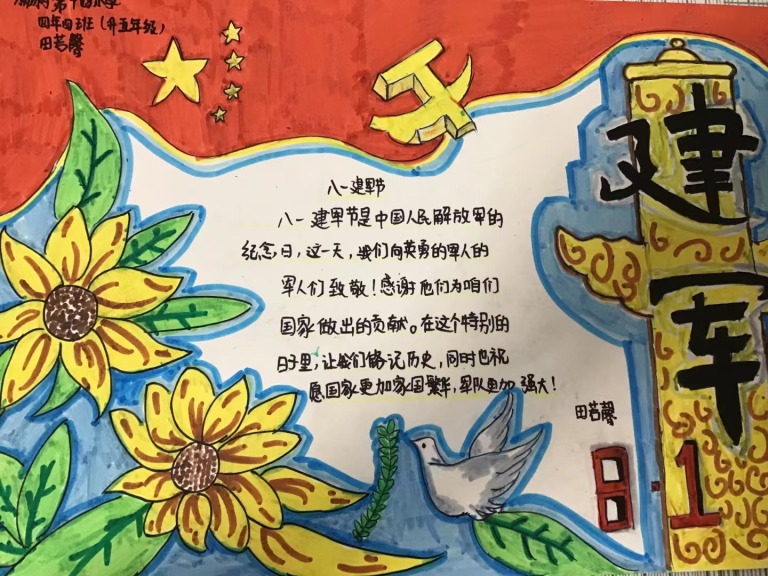 第十四小学
四年四班（升五年级）
田茗馨
八一建军节
八一建军节是中国人民解放军的
纪念日，这一天，我们向英勇的军人的
军人们致敬！感谢他们为咱们
国家做出的贡献。在这个特别的
日子里，让我们铭记历史，同时也祝
愿国家更加家国繁华，军队更加强大！
田茗馨
建军
8·1